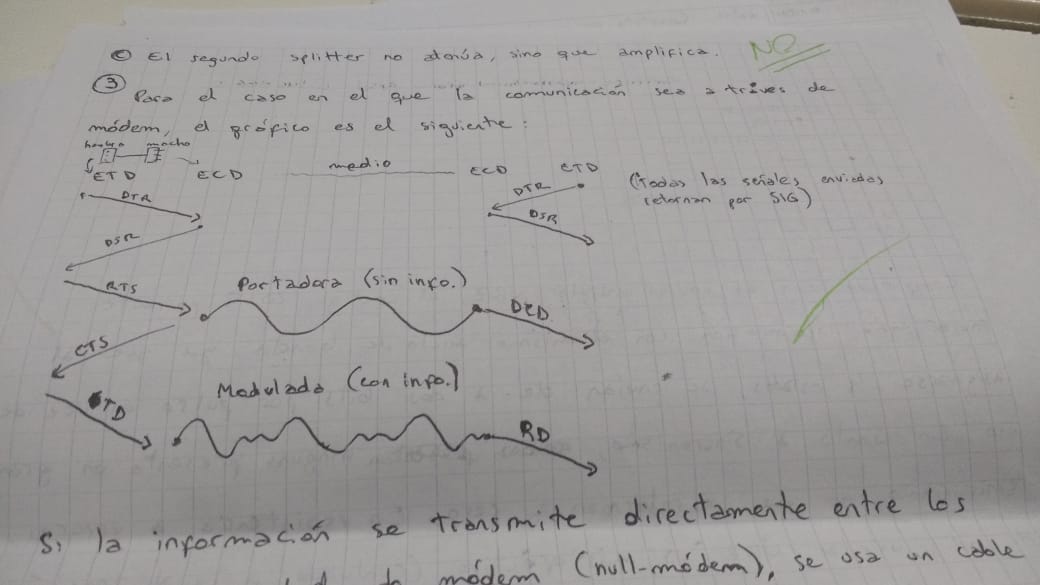 © El segundo splitter no atenúa, sino que amplifica. NO
③ Para el caso en el que la comunicación sea a través de
módem, el gráfico es el siguiente:
hembra macho
ETD ECD medio ECD ETD
(Todas las señales enviadas
retornan por SIG)
DTR DTR
DSR DSR
RTS Portadora (sin info.) DCD
CTS
Modulada (con info.)
TD RD
Si la información se transmite directamente entre los
módem (null-módem), se usa un cable